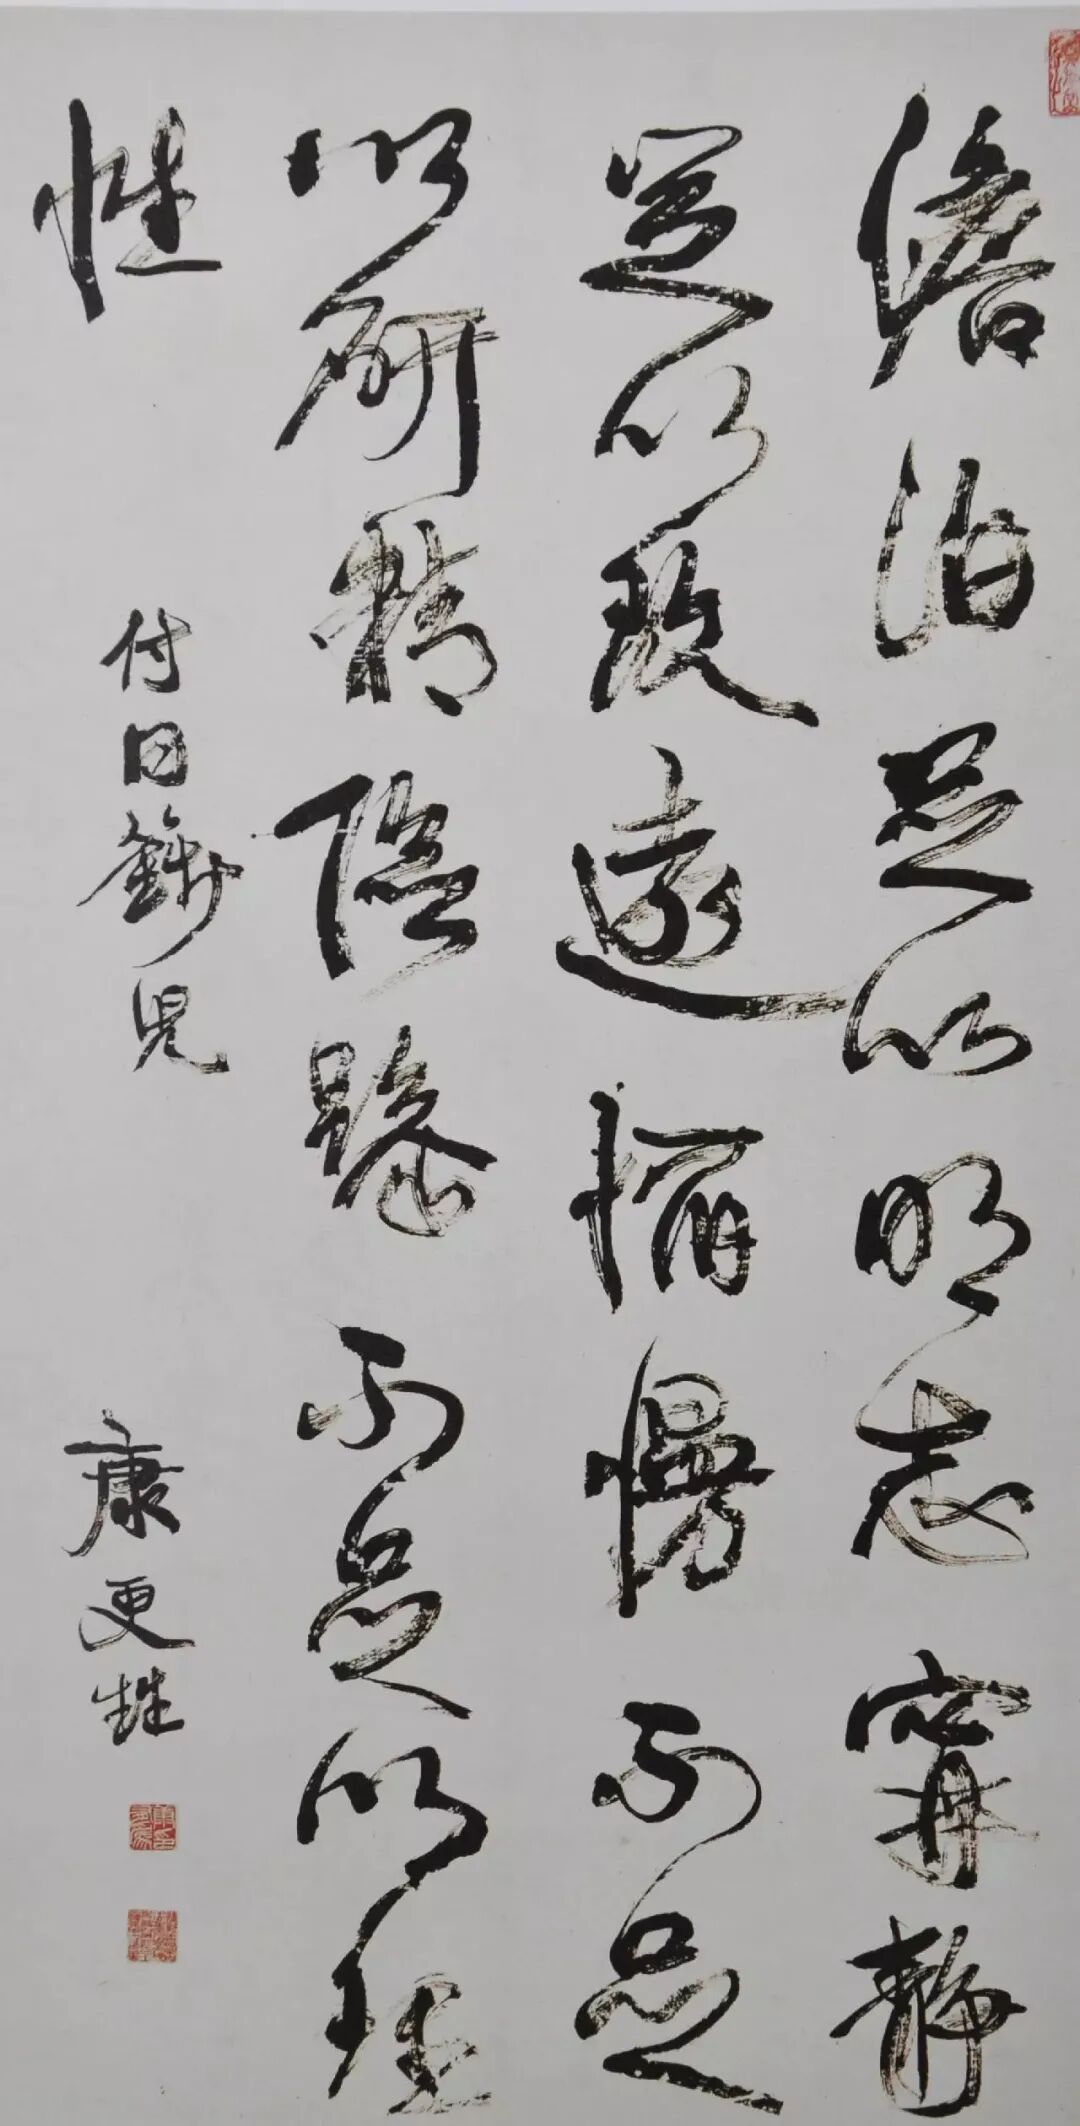 澹泊足以明志寗靜
足以致遠慆慢不足
以研精險躁不足以理
性
付同籛兒
康更甡